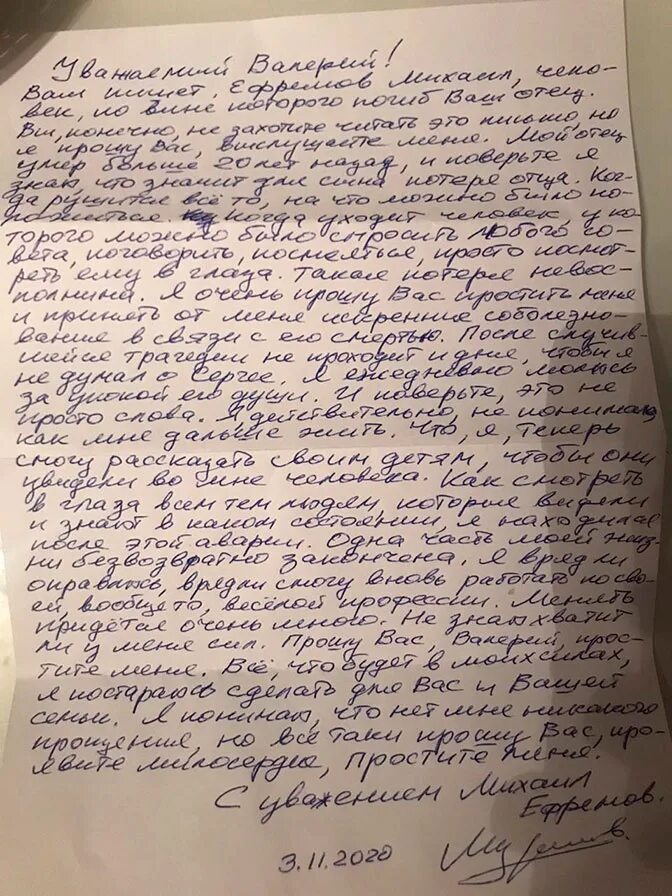 Уважаемый Валерий!
Вам пишет, Ефремов Михаил, чело-
век, по вине которого погиб Ваш отец.
Вы, конечно, не захотите читать это письмо, но
я прошу Вас, выслушайте меня. Мой отец
умер больше 20 лет назад, и поверьте я
знаю, что значит для сына потеря отца. Ког-
да рушится всё то, на что можно было по-
ложиться. Когда уходит человек, у ко-
торого можно было спросить любого со-
вета, поговорить, посмеяться, просто посмот-
реть ему в глаза. Такая потеря невос-
полнима. Я очень прошу Вас простить меня
и принять от меня искренние соболезно-
вания в связи с его смертью. После случив-
шейся трагедии не проходит и дня, чтобы я
не думал о Сергее. Я ежедневно молюсь
за упокой его души. И поверьте, это не
просто слова. Я действительно, не понимаю,
как мне дальше жить. Что, я, теперь
смогу рассказать своим детям, чтобы они
увидели во мне человека. Как смотреть
в глаза всем тем людям, которые видели
и знают в каком состоянии, я находился
после этой аварии. Одна часть моей жиз-
ни безвозвратно закончена. Я вряд ли
оправлюсь, врядли смогу вновь работать по сво-
ей, вообще то, весёлой профессии. Менять
придётся очень много. Не знаю хватит
ли у меня сил. Прошу Вас, Валерий, прос-
тите меня. Всё, что будет в моих силах,
я постараюсь сделать для Вас и Вашей
семьи. Я понимаю, что нет мне никакого
прощения, но всё таки прошу Вас, про-
явите милосердие, простите меня.
С уважением Михаил
Ефремов.
3.11.2020